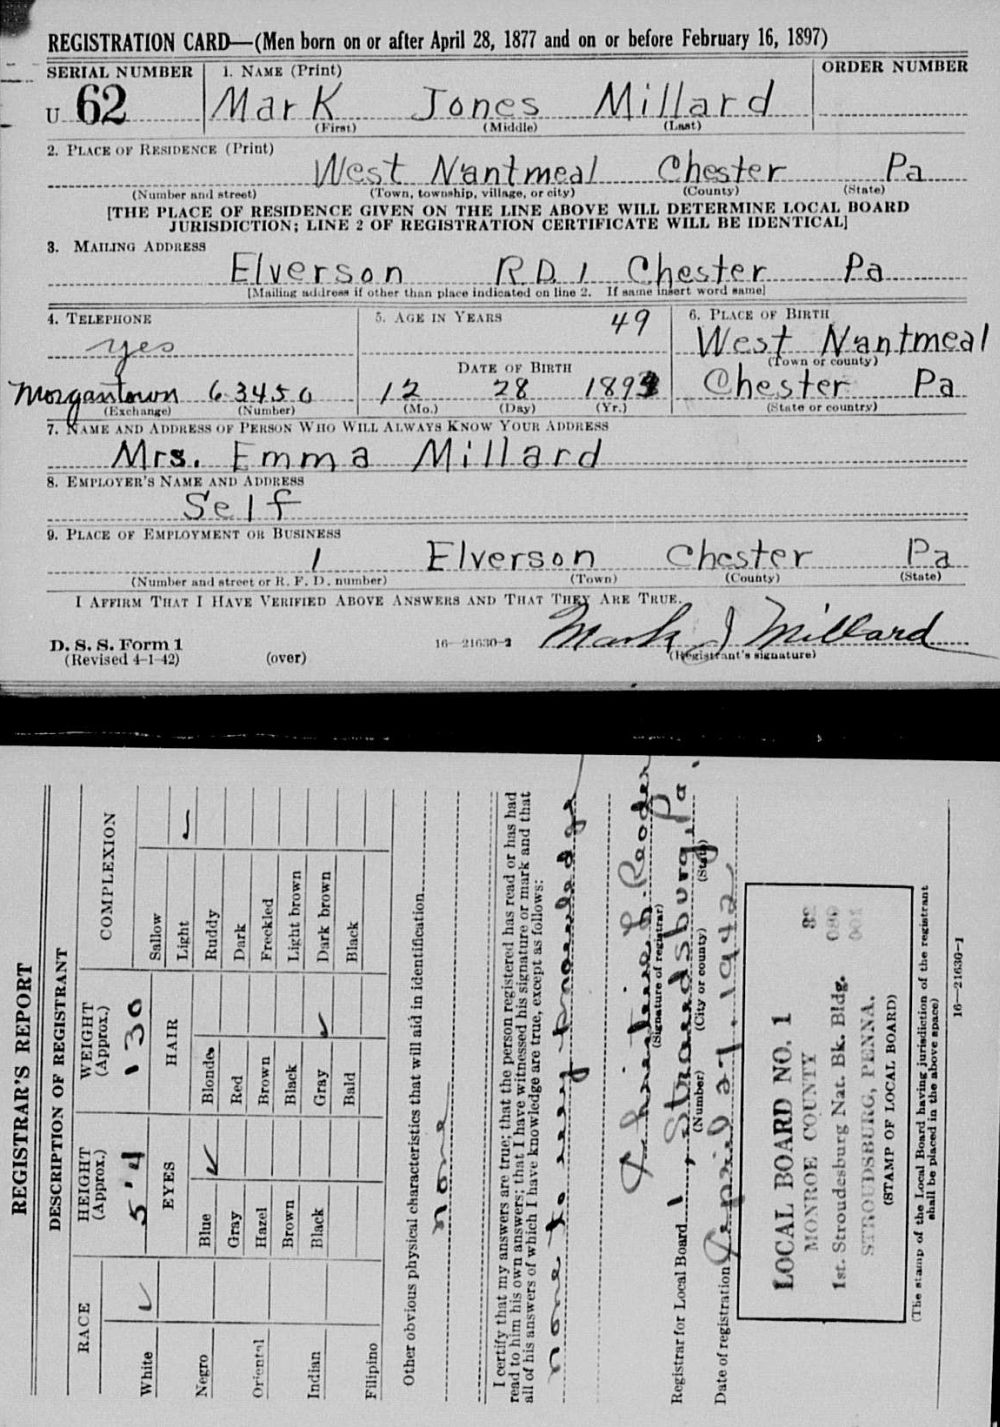 REGISTRATION CARD—(Men born on or after April 28, 1877 and on or before February 16, 1897)
SERIAL NUMBER 1. NAME (Print) ORDER NUMBER
U 62 Mark Jones Millard
(First) (Middle) (Last)
2. PLACE OF RESIDENCE (Print)
West Nantmeal Chester Pa
(Number and street) (Town, township, village, or city) (County) (State)
[THE PLACE OF RESIDENCE GIVEN ON THE LINE ABOVE WILL DETERMINE LOCAL BOARD
JURISDICTION; LINE 2 OF REGISTRATION CERTIFICATE WILL BE IDENTICAL]
3. MAILING ADDRESS
Elverson R.D. 1 Chester Pa
[Mailing address if other than place indicated on line 2. If same insert word same]
4. TELEPHONE 5. AGE IN YEARS 49 6. PLACE OF BIRTH
yes West Nantmeal
DATE OF BIRTH (Town or county)
Morgantown 63450 12 28 189 Chester Pa
(Exchange) (Number) (Mo.) (Day) (Yr.) (State or country)
7. NAME AND ADDRESS OF PERSON WHO WILL ALWAYS KNOW YOUR ADDRESS
Mrs. Emma Millard
8. EMPLOYER'S NAME AND ADDRESS
Self
9. PLACE OF EMPLOYMENT OR BUSINESS
1 Elverson Chester Pa
(Number and street or R. F. D. number) (Town) (County) (State)
I AFFIRM THAT I HAVE VERIFIED ABOVE ANSWERS AND THAT THEY ARE TRUE.
D. S. S. Form 1 16—21630-2 Mark J Millard
(Revised 4-1-42) (over) (Registrant's signature)
REGISTRAR'S REPORT
DESCRIPTION OF REGISTRANT
RACE HEIGHT (Approx.) WEIGHT (Approx.) COMPLEXION
5'4 130
White ✓ EYES HAIR Sallow
Light ✓
Negro Blue ✓ Blonde Ruddy
Gray Red Dark
Oriental Hazel Brown Freckled
Brown Black Light brown
Indian Black Gray ✓ Dark brown
Bald Black
Filipino
Other obvious physical characteristics that will aid in identification
none
I certify that my answers are true; that the person registered has read or has had
read to him his own answers; that I have witnessed his signature or mark and that
all of his answers of which I have knowledge are true, except as follows:
none to my knowledge
Christine L. Reeder
(Signature of registrar)
Registrar for Local Board 1, Stroudsburg, Pa.
(Number) (City or county) (State)
Date of registration April 27, 1942
LOCAL BOARD NO. 1 32
MONROE COUNTY 089
1st. Stroudesburg Nat. Bk. Bldg. 001
STROUDSBURG, PENNA.
(STAMP OF LOCAL BOARD)
(The stamp of the Local Board having jurisdiction of the registrant
shall be placed in the above space)
16—21630-1